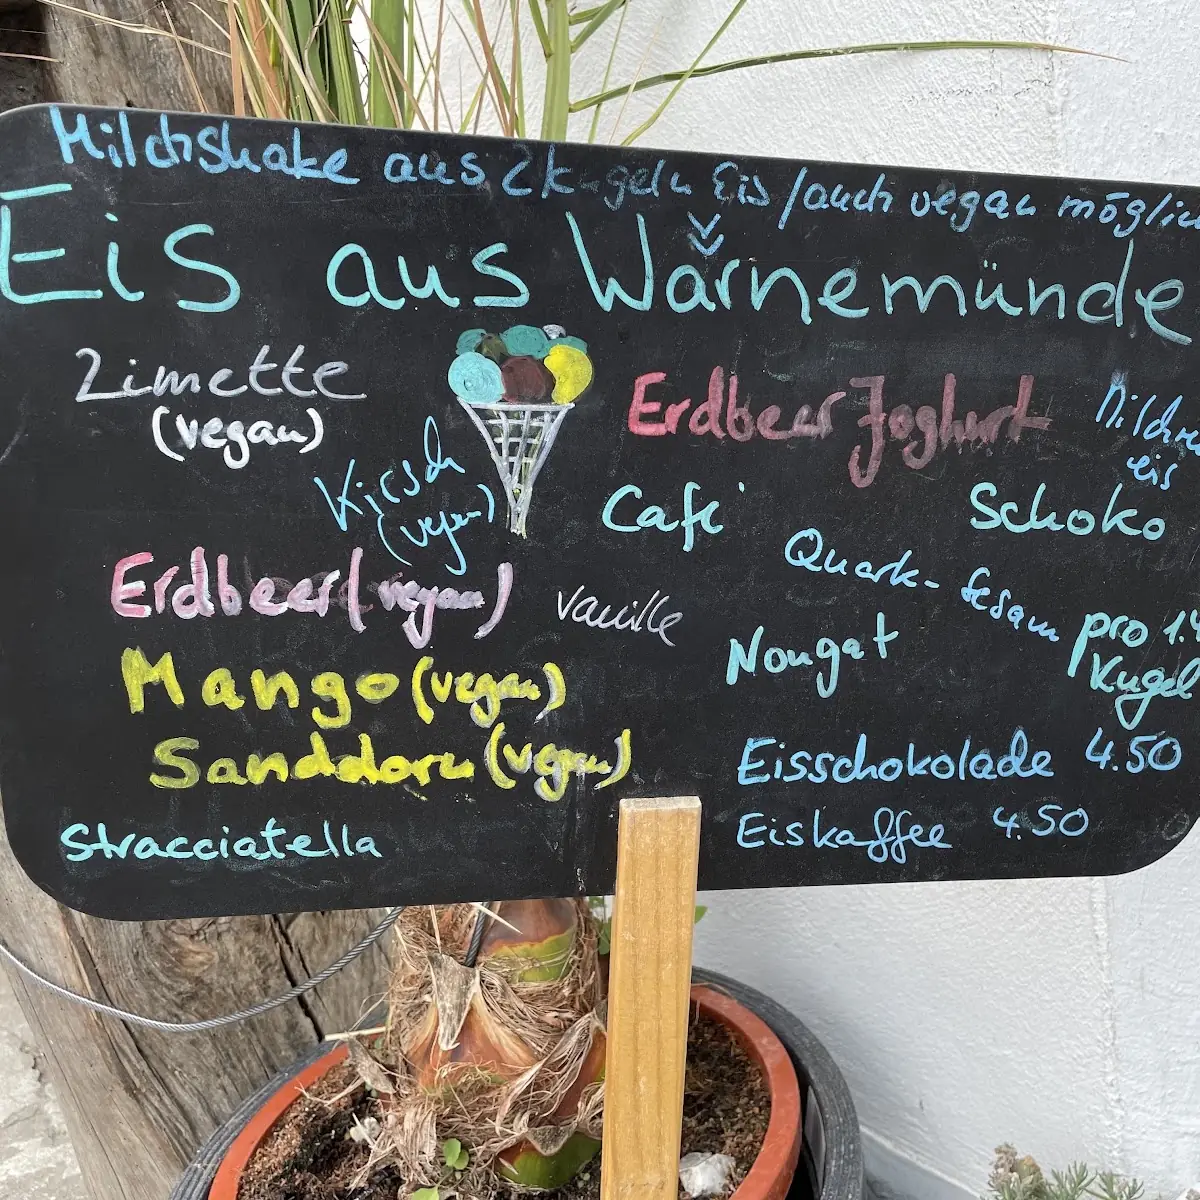 Milchshake aus 2 Kugeln Eis / auch vegan möglich
Eis aus Warnemünde
Limette
(vegan)
Kirsch
(vegan)
Erdbeer (vegan)
Mango (vegan)
Sanddorn (vegan)
Stracciatella
Vanille
Erdbeer Joghurt
Milchreis
eis
Café
Schoko
Quark-Sesam
Nougat
pro
Kugel
Eisschokolade 4.50
Eiskaffee 4.50